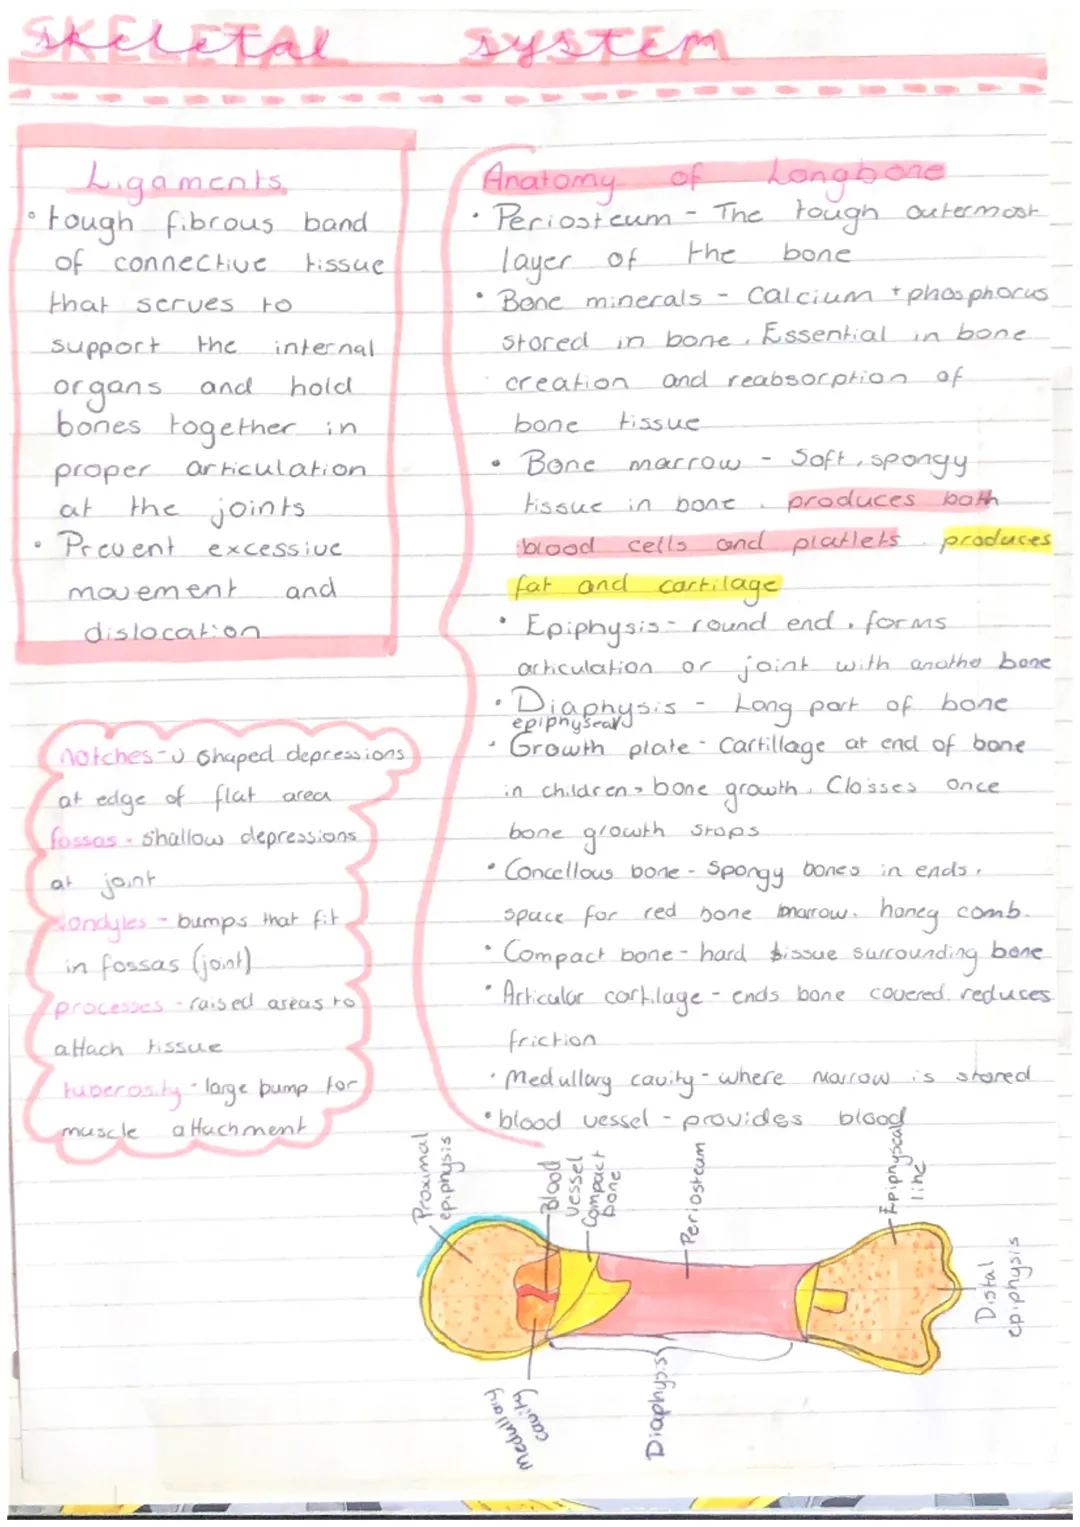 SKELETAL SYSTEM
Ligaments
• tough fibrous band
of connective tissue
that serves to
support the internal
organs and hold
bones together in
proper articulation
at the joints
• Prevent excessive
movement and
dislocation
notches - U shaped depressions
at edge of flat area
fossas - shallow depressions
at joint
condyles - bumps that fit
in fossas (joint)
processes - raised areas to
attach tissue
tuberosity - large bump for
muscle attachment
Anatomy of Longbone
• Periosteum - The tough outermost
layer of the bone
• Bone minerals - Calcium + phosphorus
stored in bone. Essential in bone
creation and reabsorption of
bone tissue
• Bone marrow - Soft, spongy
tissue in bone. produces both
blood cells and platlets. produces
fat and cartilage
• Epiphysis - round end. forms
articulation or joint with anothe bone
• Diaphysis - Long part of bone
epiphyseal
• Growth plate - Cartillage at end of bone
in children > bone growth. Closses once
bone growth stops
• Concellous bone - Spongy bones in ends.
space for red bone marrow. honey comb.
• Compact bone - hard tissue surrounding bone
• Articular cartilage - ends bone covered. reduces
friction
• Medullary cavity - where marrow is stored
• blood vessel - provides blood
Proximal
epiphysis
Blood
vessel
Compact
bone
Periosteum
Epiphyseal
line
Distal
epiphysis
medullary
cavity
Diaphysis